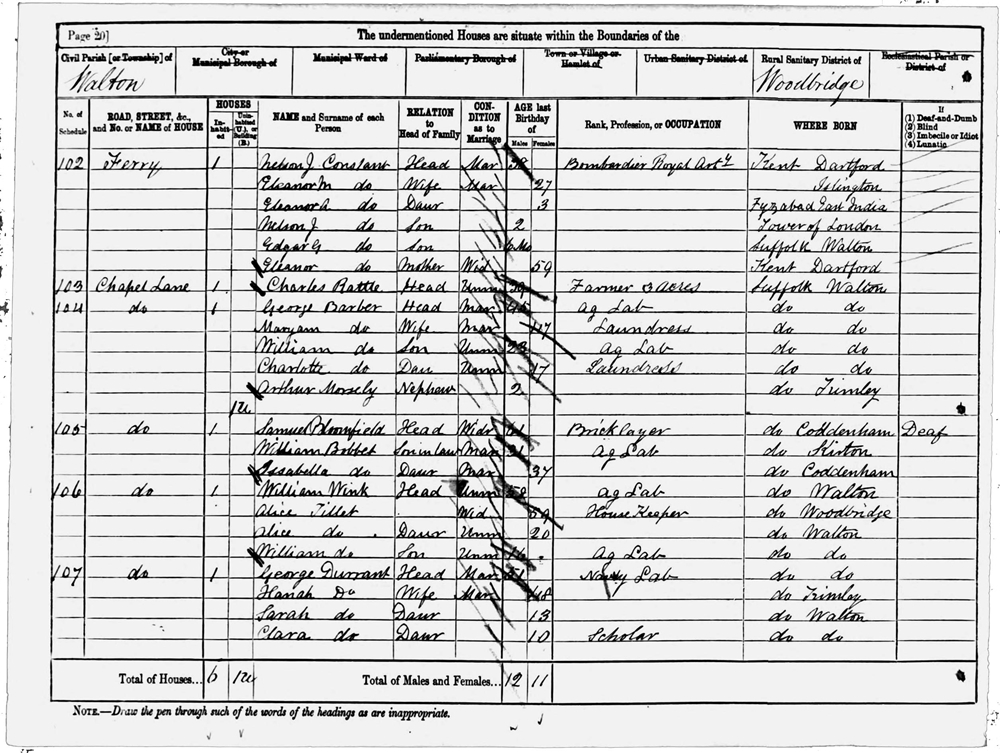 Page 20]
The undermentioned Houses are situate within the Boundaries of the
Civil Parish [or Township] of
City or Municipal Borough of
Municipal Ward of
Parliamentary Borough of
Town or Village or Hamlet of
Urban Sanitary District of
Rural Sanitary District of
Ecclesiastical Parish or District of
Walton
Woodbridge
No. of Schedule
ROAD, STREET, &c., and No. or NAME of HOUSE
HOUSES
Inhabited
Uninhabited (U.), or Building (B.)
NAME and Surname of each Person
RELATION to Head of Family
CONDITION as to Marriage
AGE last Birthday of
Males
Females
Rank, Profession, or OCCUPATION
WHERE BORN
If
(1) Deaf-and-Dumb
(2) Blind
(3) Imbecile or Idiot
(4) Lunatic
102 Ferry 1 Nelson J. Constant Head Mar Bombardier Royal Arty Kent Dartford
Eleanor M do Wife Mar 27 Islington
Eleanor A do Daur 3 Fyzabad East India
Nelson J do Son 2 Tower of London
Edgar G do Son 6 Mo Suffolk Walton
Eleanor do Mother Wid 59 Kent Dartford
103 Chapel Lane 1 Charles Rattle Head Unm Farmer 3 acres Suffolk Walton
104 do 1 George Barber Head Mar Ag Lab do do
Maryam do Wife Mar 47 Laundress do do
William do Son Unm 23 Ag Lab do do
Charlotte do Dau Unm 17 Laundress do do
Arthur Nephew 2 do Trimley
1u
105 do 1 Samuel Bloomfield Head Widr Bricklayer do Coddenham Deaf
William Bobbet Son in law Mar Ag Lab do Kirton
Issabella do Daur Mar 37 do Coddenham
106 do 1 William Wink Head Unm 52 Ag Lab do Walton
Alice Tillet Wid 59 House Keeper do Woodbridge
Alice do Daur Unm 20 do Walton
William do Son Unm 16 Ag Lab do do
107 do 1 George Durrant Head Mar 51 Navy Lab do do
Hanah Do Wife Mar 48 do Trimley
Sarah do Daur 13 do Walton
Clara do Daur 10 Scholar do do
Total of Houses... 6 1u
Total of Males and Females... 12 11
NOTE.—Draw the pen through such of the words of the headings as are inappropriate.